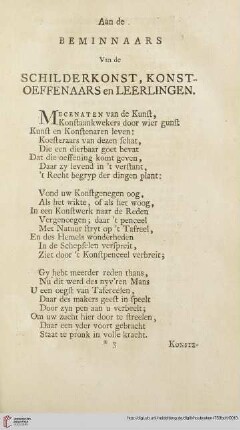 Aan de
BEMINNAARS
Van de
SCHILDERKONST, KONST-
OEFFENAARS en LEERLINGEN.
MECENATEN van de Kunst,
Konstaankwekers door wier gunst
Kunst en Konstenaren leven:
Koesteraars van dezen schat,
Die een dierbaar goet bevat
Dat die oeffening komt geven,
Daar zy levend in 't verstant,
't Recht begryp der dingen plant;
Vond uw Konstgenegen oog,
Als het wikte, of als het woog,
In een Konstwerk naar de Reden
Vergenoegen; daar 't penceel
Met Natuur stryt op 't Tafreel,
En des Hemels wonderheden
In de Schepselen verspreit,
Ziet door 't Konstpenceel verbreit;
Gy hebt meerder reden thans,
Nu dit werd des nyv'ren Mans
U een oegst van Tafereelen,
Daar des makers geest in speelt
Door zyn pen aan u verbeelt;
Om uw zacht hier door te streelen,
Daar een yder voort gebracht
Staat te pronk in volle kracht.
* 3 KONSTE-